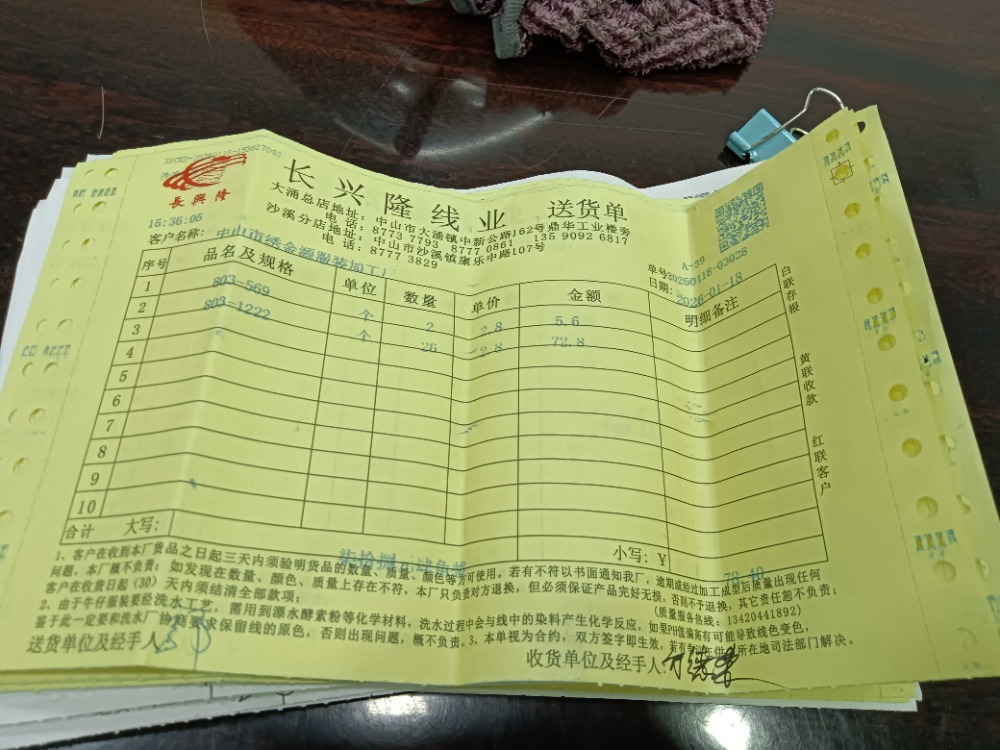 長興隆
长兴隆线业 送货单
大涌总店地址：中山市大涌镇中新公路162号鼎华工业楼旁
电话：8773 7793 8777 0861 135 9092 6817
沙溪分店地址：中山市沙溪镇康乐中路107号
电话：8777 3829
15:36:05
A-39
单号20260118-03028
客户名称：中山市绣金源服装加工厂
日期：2026-01-18
序号 品名及规格 单位 数量 单价 金额 明细备注
1 803-569 个 2 2.8 5.6
2 803-1222 个 26 2.8 72.8
3
4
5
6
7
8
9
10
合计 大写： 柒拾捌元肆角整 小写：￥ 78.40
白联存根
黄联收款
红联客户
1、客户在收到本厂货品之日起三天内须验明货品的数量、质量、颜色等方可使用。若有不符以书面通知我厂，逾期或经过加工成型后质量出现任何
问题，本厂概不负责；如发现在数量、颜色、质量上存在不符，本厂只负责对方退换，但必须保证产品完好无损，否则不予退换，其它责任恕不负责；
客户在收货日起（30）天内须结清全部款项； (质量服务热线：13420441892)
2、由于牛仔服装要经洗水工艺，需用到漂水酵素粉等化学材料，洗水过程中会与线中的染料产生化学反应，如果PH值偏高有可能导致线色变色，
鉴于此一定要和洗水厂协商要求保留线的原色，否则出现问题，概不负责。3、本单视为合约，双方签字即生效，若有争议在供方所在地司法部门解决。
送货单位及经手人
收货单位及经手人